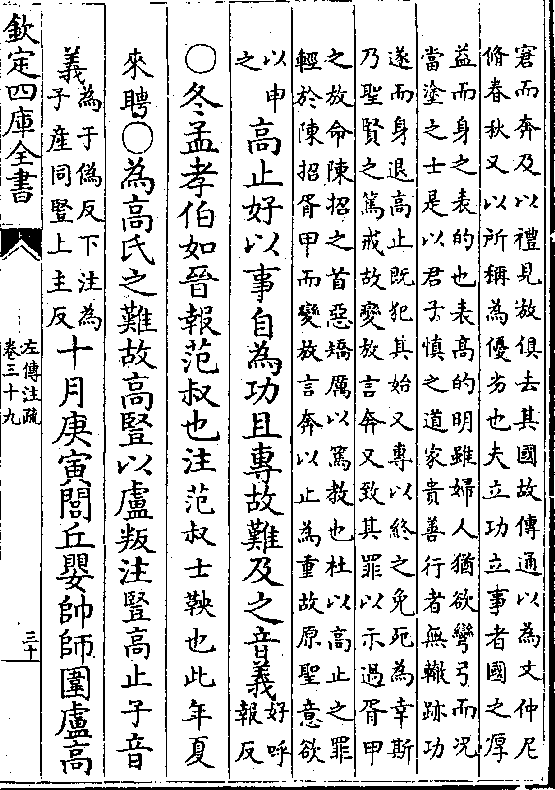 窘而奔及以禮見放俱去其國故傳通以為文仲尼
脩春秋又以所稱為優劣也夫立功立事者國之厚
益而身之表的也表高的明雖婦人猶欲彎弓而况
當塗之士是以君子慎之道家貴善行者無轍跡功
遂而身退高止既犯其始又專以終之免死為幸斯
乃聖賢之篤戒故變放言奔又致其罪以示過胥甲
之放命陳招之首惡矯厲以篤教也杜以高止之罪
輕於陳招胥甲而變放言奔以止為重故原聖意欲
以申
之
高止好以事自為功且專故難及之音義
好呼
報反
○冬孟孝伯如晉報范叔也注范叔士鞅也此年夏
來聘○為高氏之難故高豎以盧叛注豎高止子音
義
為于偽反下注為
子産同豎上主反
十月庚寅閭丘嬰帥師圍盧高
欽定四庫全書
左傳注疏
卷三十九
三十